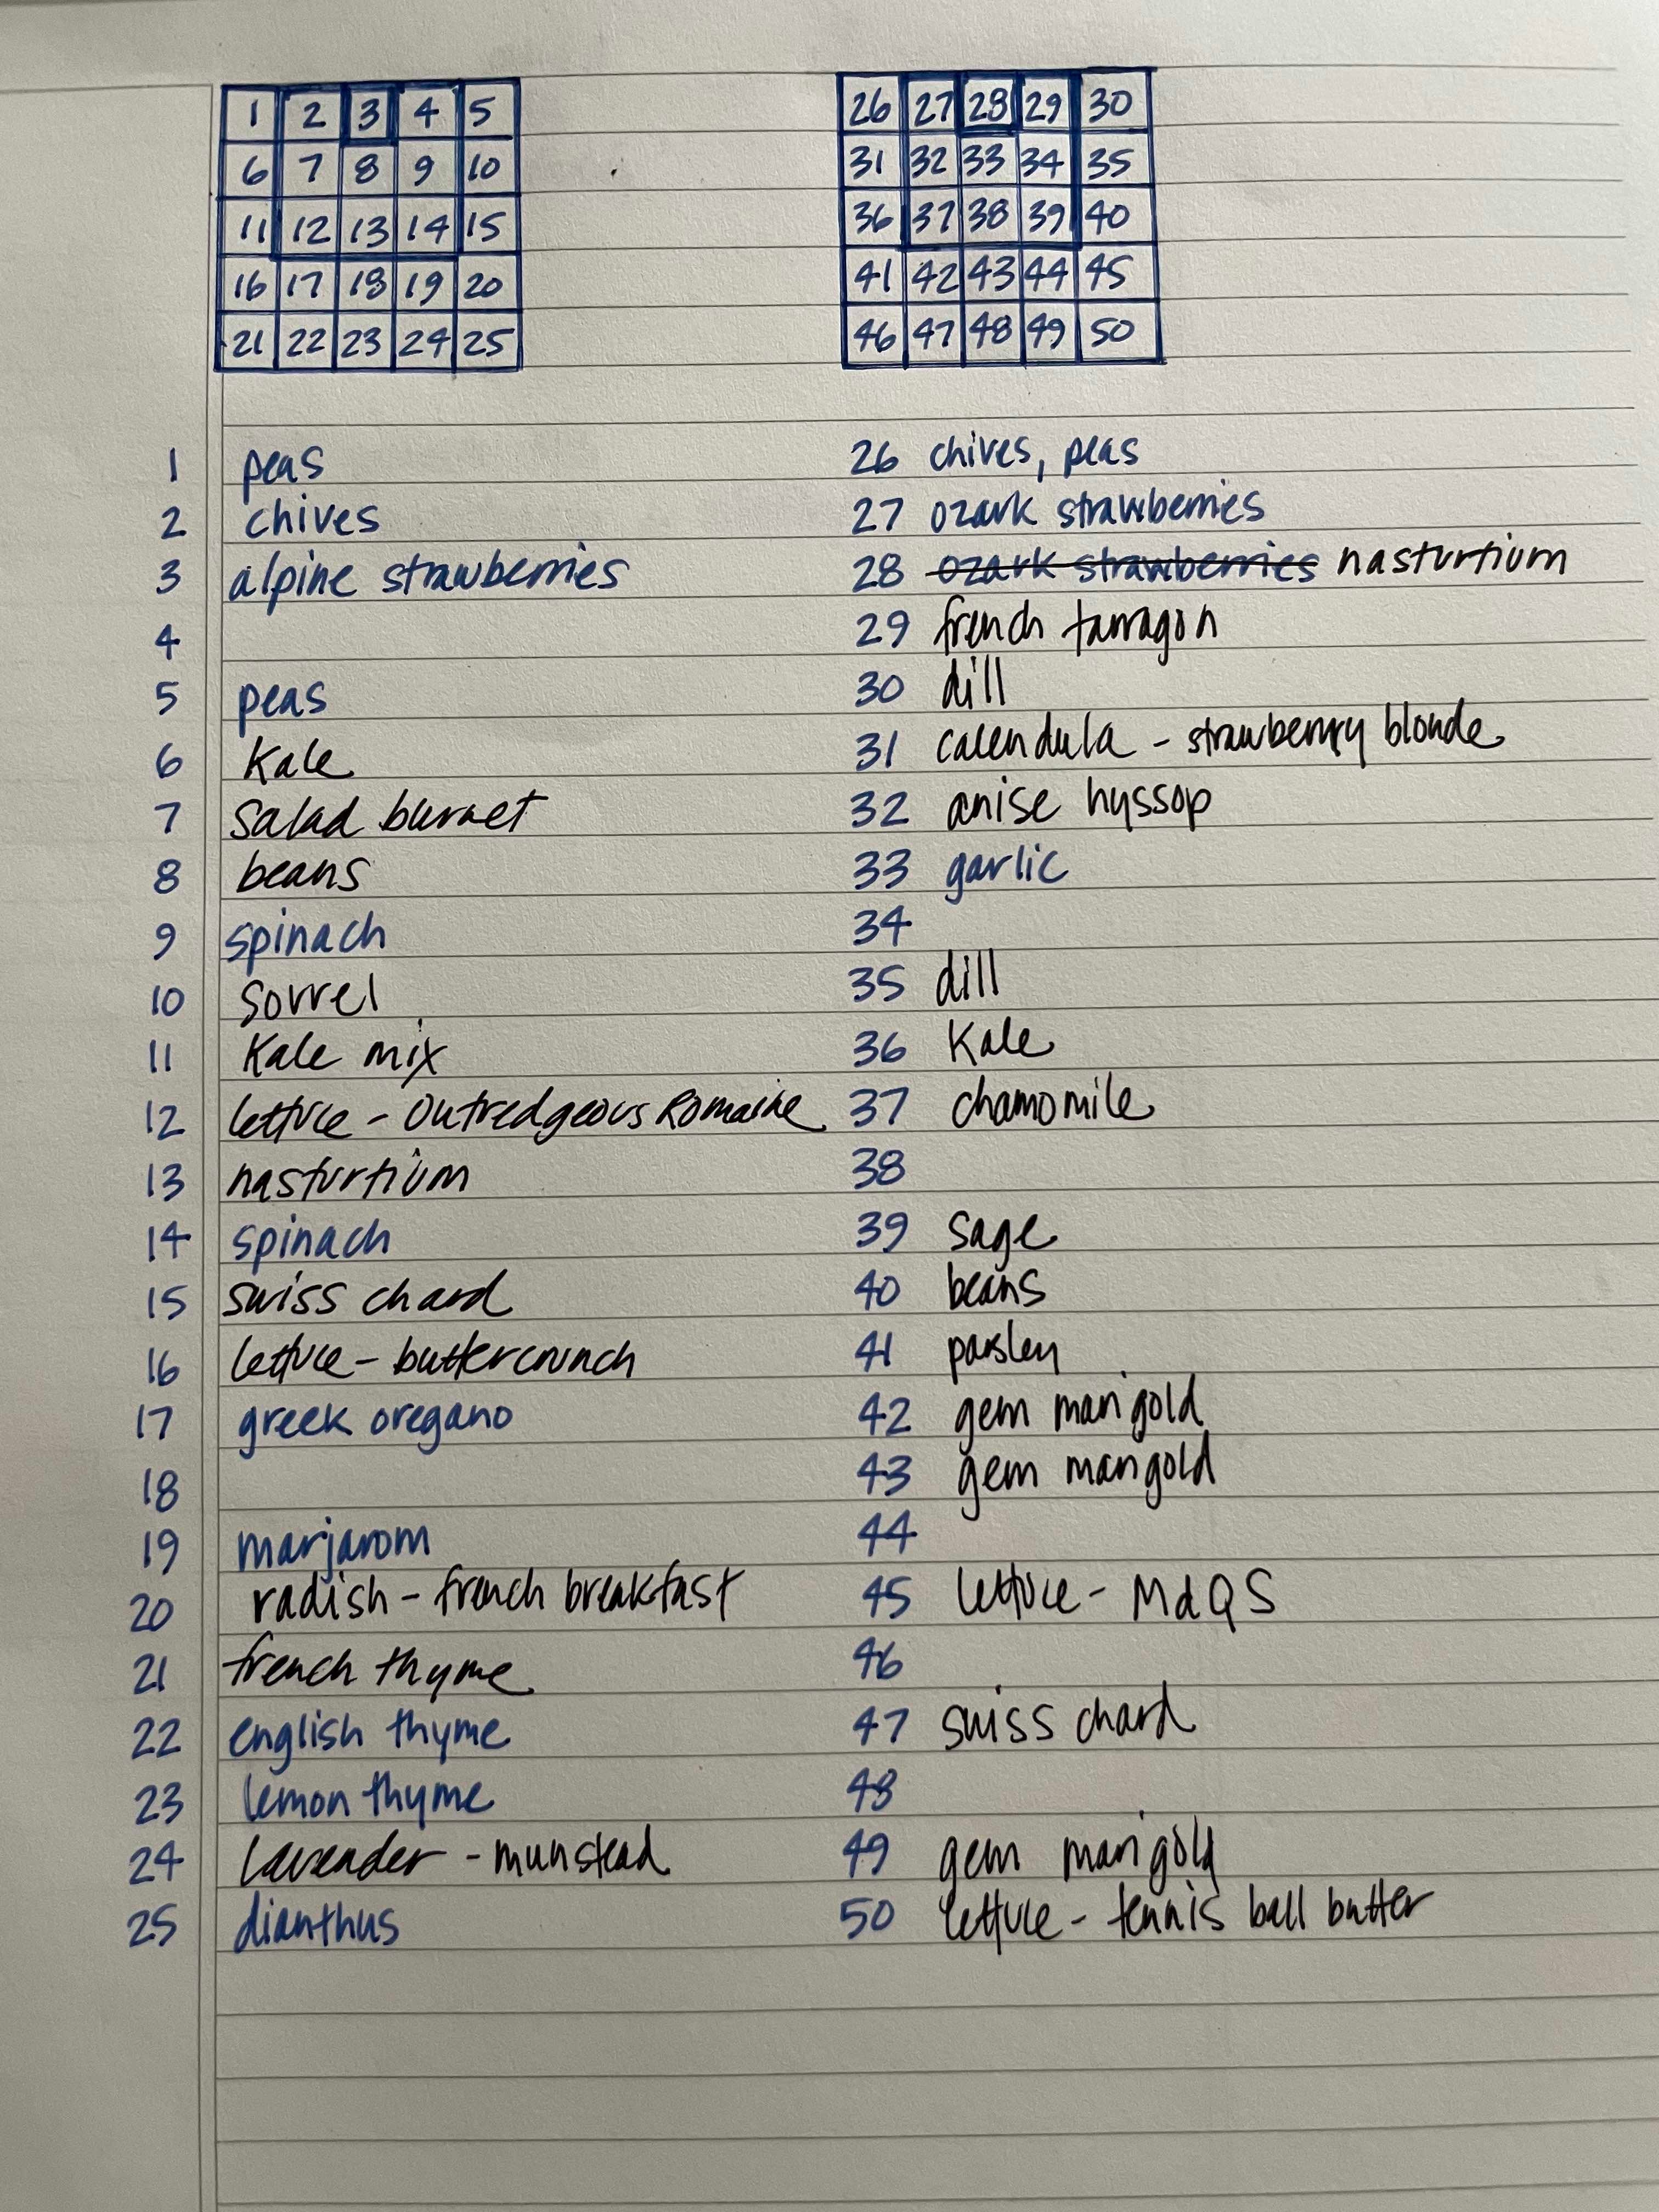 1 2 3 4 5
6 7 8 9 10
11 12 13 14 15
16 17 18 19 20
21 22 23 24 25
26 27 28 29 30
31 32 33 34 35
36 37 38 39 40
41 42 43 44 45
46 47 48 49 50
1 peas
2 chives
3 alpine strawberries
4
5 peas
6 Kale
7 Salad burnet
8 beans
9 spinach
10 Sorrel
11 Kale mix
12 lettuce - Outredgeous Romaine
13 nasturtium
14 spinach
15 swiss chard
16 lettuce - buttercrunch
17 greek oregano
18
19 marjarom
20 radish - french breakfast
21 french thyme
22 english thyme
23 lemon thyme
24 Lavender - munstead
25 dianthus
26 chives, peas
27 ozark strawberries
28 ozark strawberries nasturtium
29 french tarragon
30 dill
31 calendula - strawberry blonde
32 anise hyssop
33 garlic
34
35 dill
36 Kale
37 chamomile
38
39 sage
40 beans
41 parsley
42 gem marigold
43 gem marigold
44
45 lettuce - MdQS
46
47 swiss chard
48
49 gem marigold
50 lettuce - tennis ball butter